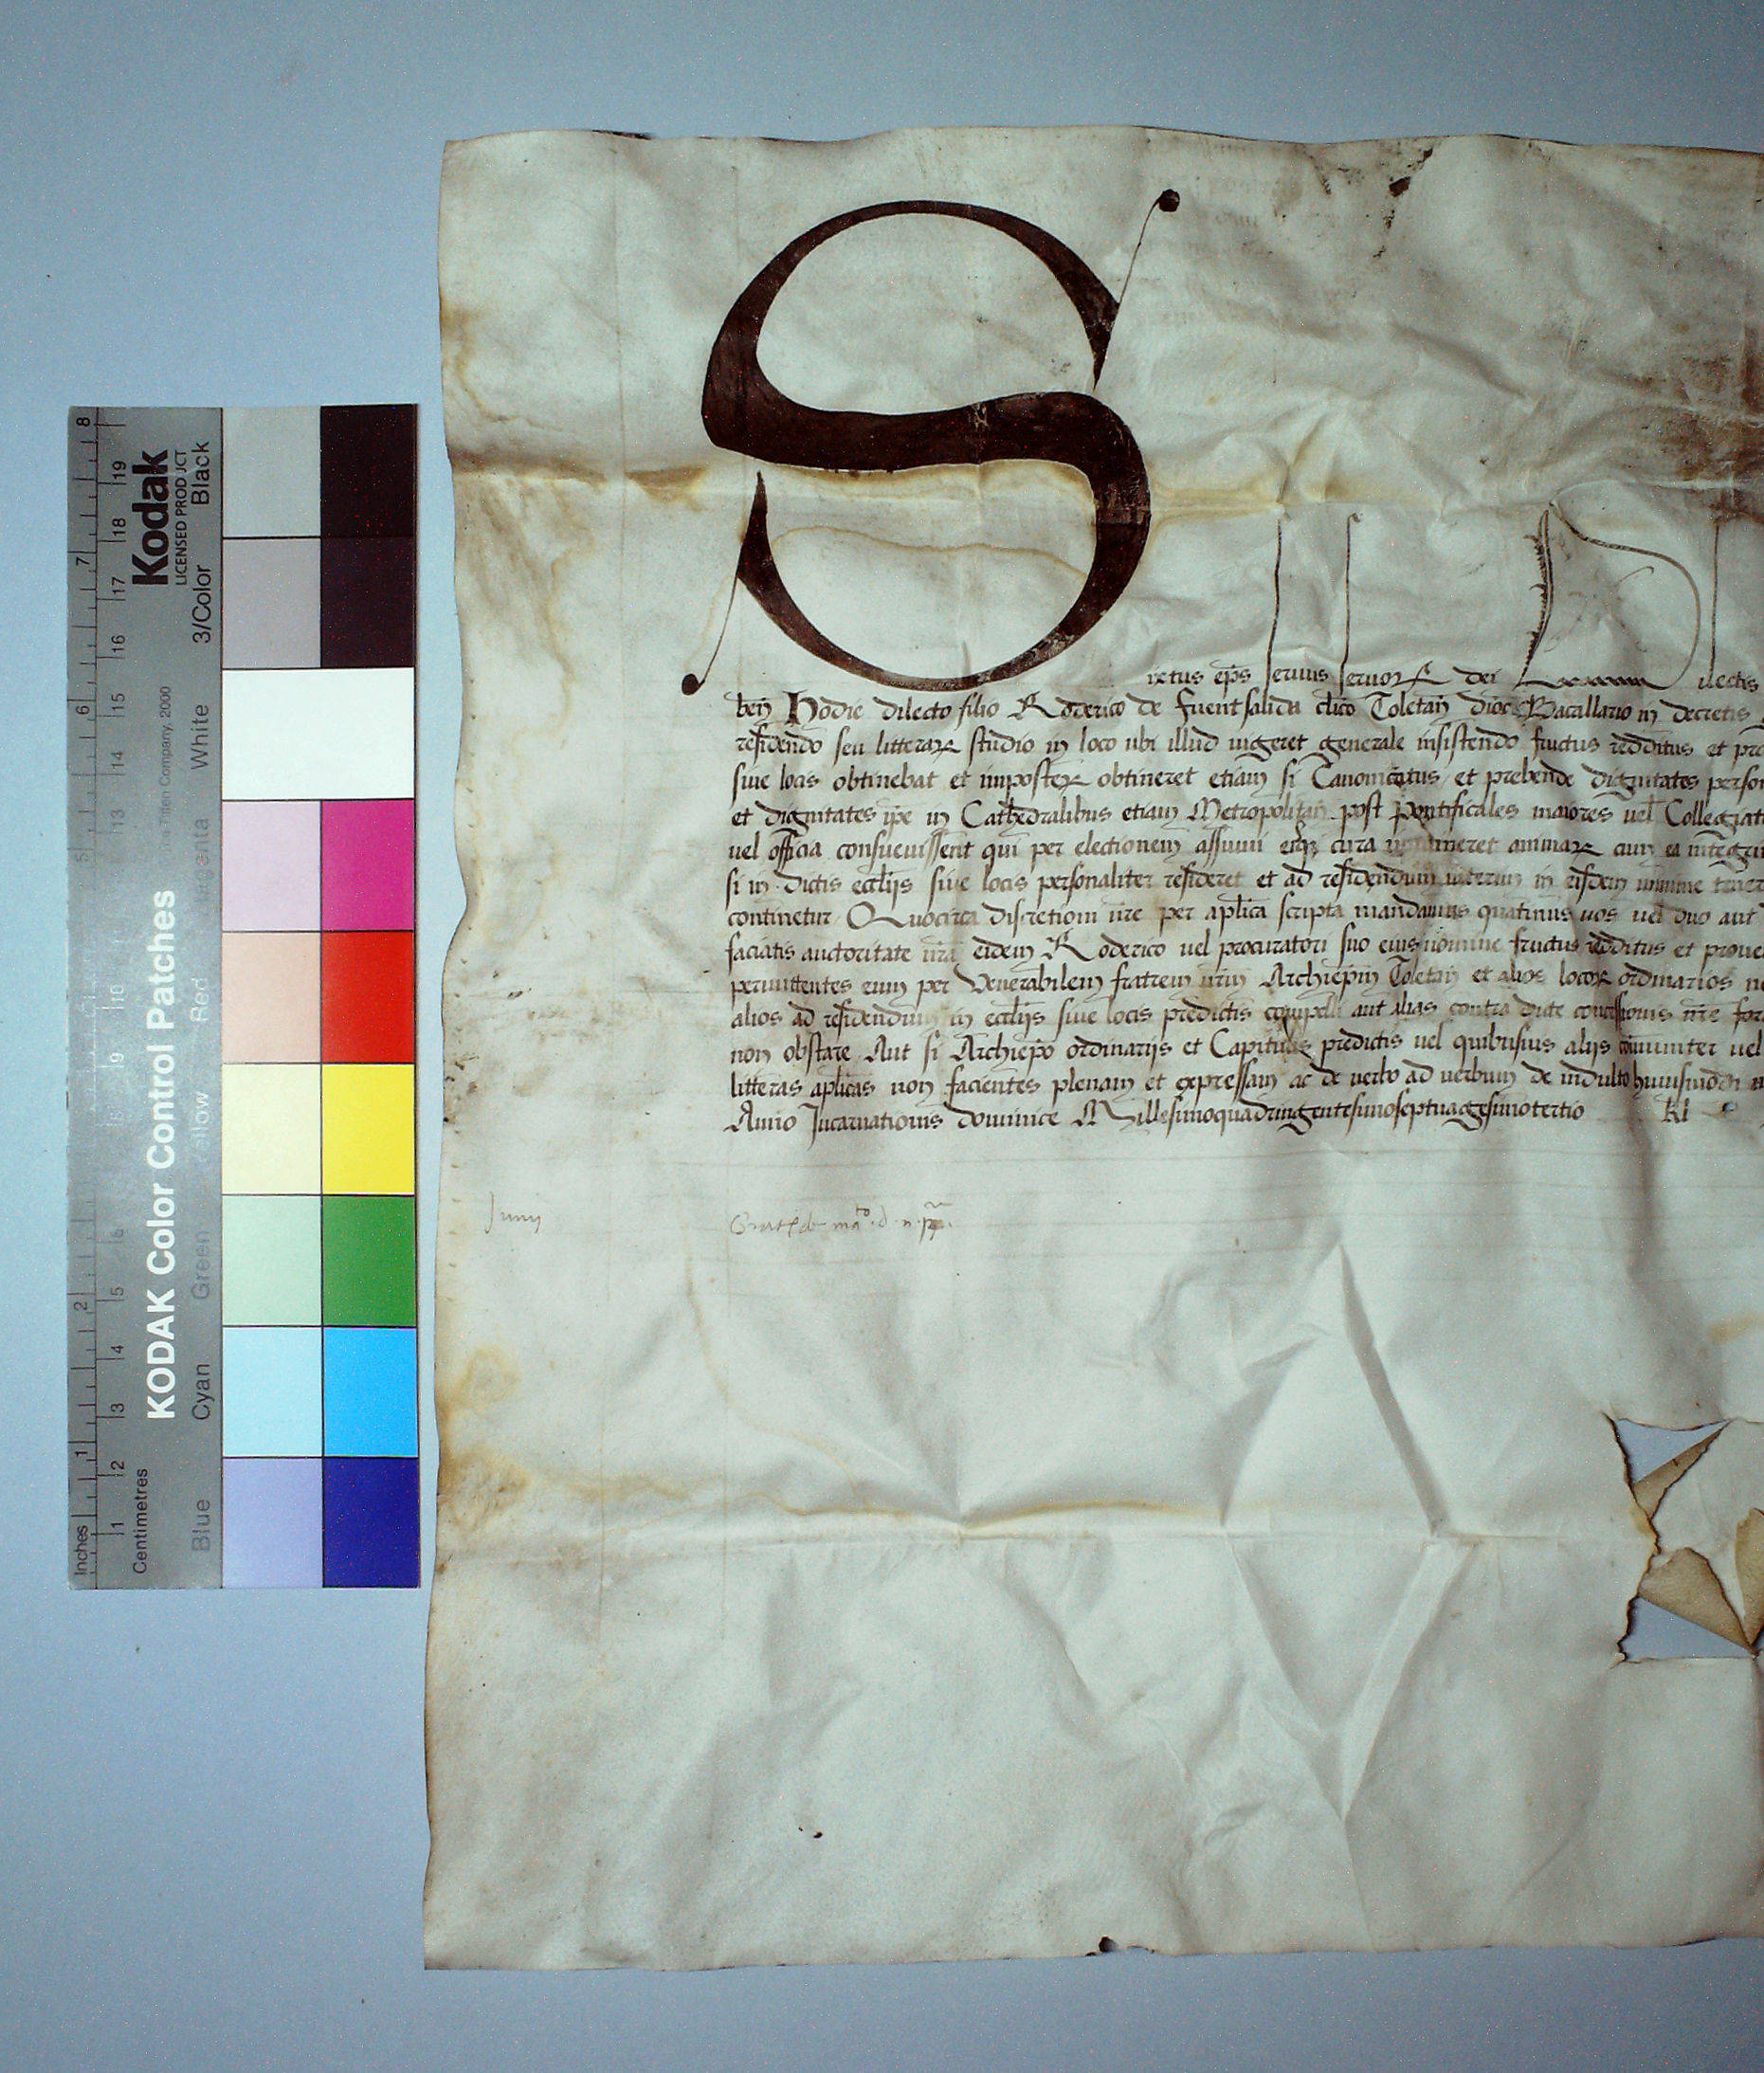 Kodak
LICENSED PRODUCT
KODAK Color Control Patches
Blue Cyan Green Yellow Red Magenta White 3/Color Black
Inches 1 2 5 6 7 8
Centimetres 1 2 3 4 5 6 9 10 13 14 15 16 17 18 19
S ixtus ep̄s servus servoꝝ dei Dilectis
ben̄ Hodie dilecto filio Roderico de fuentsalida cl̄ico Toletan̄ dioc̄ Bacallario in decretis
residendo seu litteraꝝ studio in loco ubi illud vigeret generale insistendo fructus redditus et pro
sive locis obtinebat et imposteꝝ obtineret etiam si Canonicatus et prebende dignitates person
et dignitates ip̄e in Cathedralibus etiam Metropolitan̄ post pontificales maiores vel Collegiat
vel officia consuevissent qui per electionem assumi eisq; cura immineret animaꝝ cum ea integri
si in dictis ecclijs sive locis personaliter resideret et ad residendum interim in eisdem minime
continetur Quocirca discretioni vr̄e per aplica scripta mandamus quatinus vos vel duo aut
faciatis auctoritate nr̄a eidem Roderico vel procuratori suo eius nomine fructus redditus et prove
permittentes eum per Venerabilem fratrem nr̄m Archiep̄m Toletan̄ et alios locoꝝ ordinarios
alios ad residendum in ecclijs sive locis predictis compelli aut alias contra dicte concessionis nr̄e
non obstan̄ Aut si Archiep̄o ordinarijs et Capitulis predictis vel quibusvis alijs com̄uniter vel
litteras aplicas non facientes plenam et expressam ac de verbo ad verbum de indulto huiusmodi
Anno Incarnationis dominice Millesimoquadringentesimoseptuagesimotertio kl
Junij
Gratis de mᵗᵒ d n pp̄